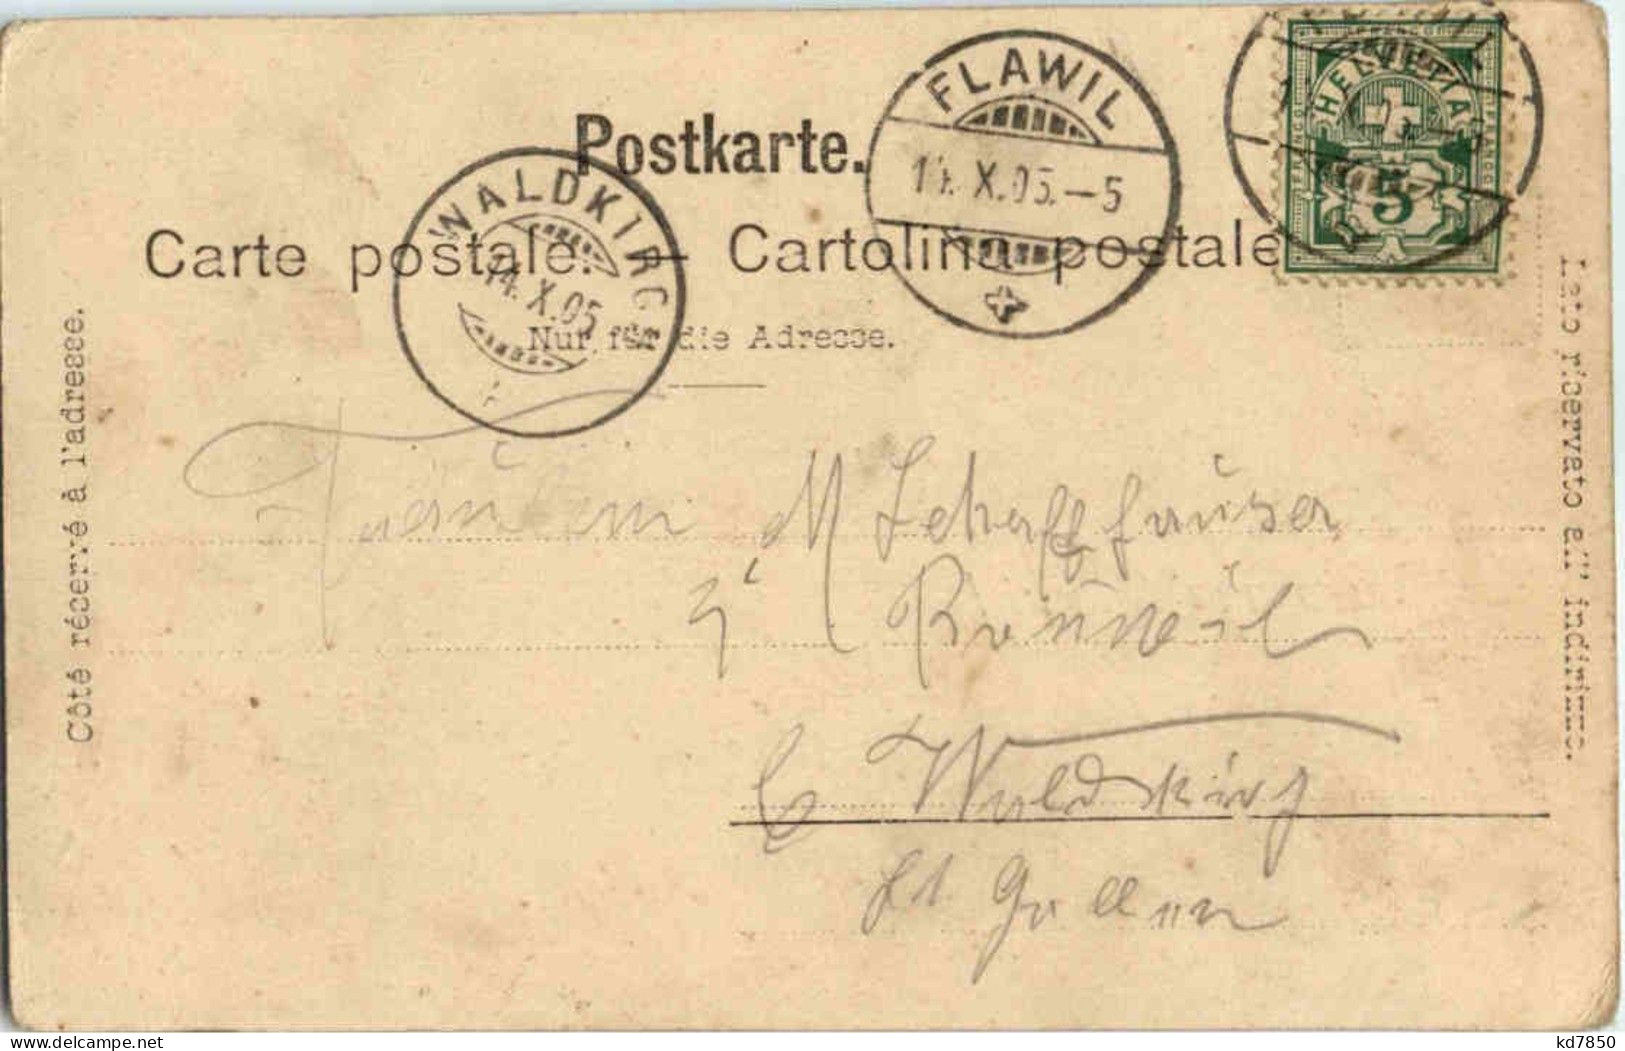 Postkarte.
Carte postale. — Cartolina postale
Nur für die Adresse.
Côté réservé à l'adresse.
Lato riservato all' indirizzo.
WALDKIRCH
14. X. 05
FLAWIL
14. X. 05. — 5
HELVETIA
FRANCO
5
Fräulein M Schaffhauser
Ronwil
b Waldkirch
St. Gallen
kd7850